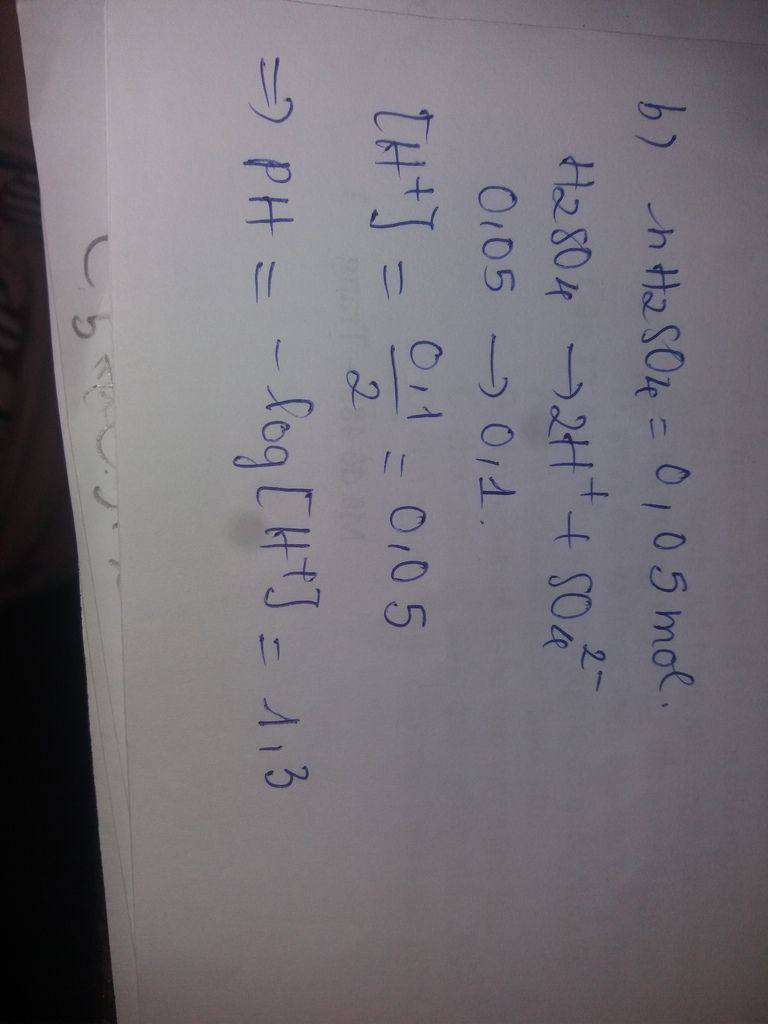 b) nH2SO4 = 0,05 mol.
H2SO4 → 2H+ + SO4 2-
0,05 → 0,1.
[H+] = 0,1/2 = 0,05
=> PH = -log[H+] = 1,3